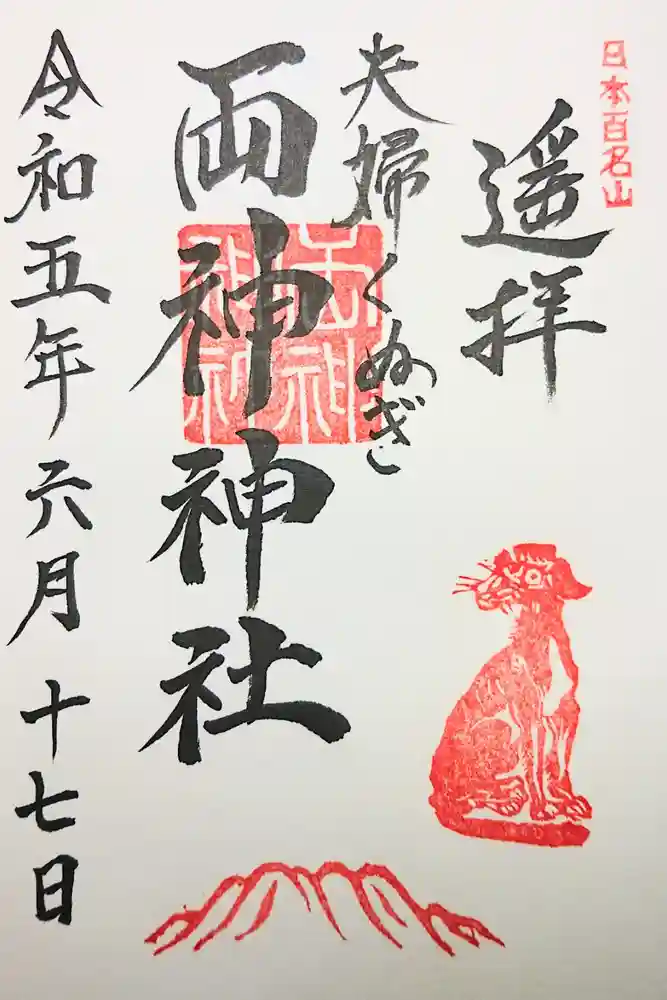 日本百名山
遥拝
夫婦くぬぎ
両神神社
令和五年六月十七日